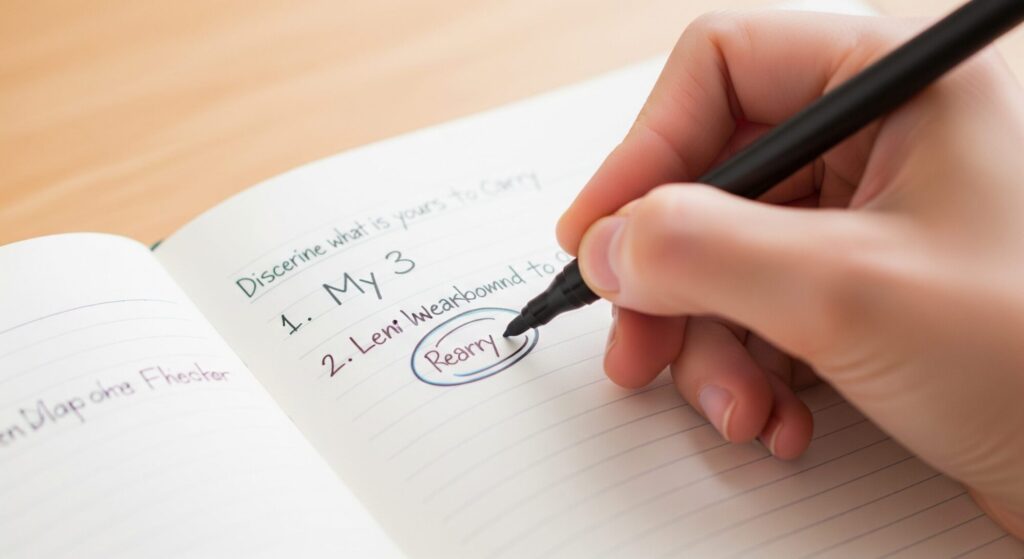 en Map ohe Fhester
Discerine what is yours to Carry
1. My 3
2. Leni Weakbomnd to
Rearry